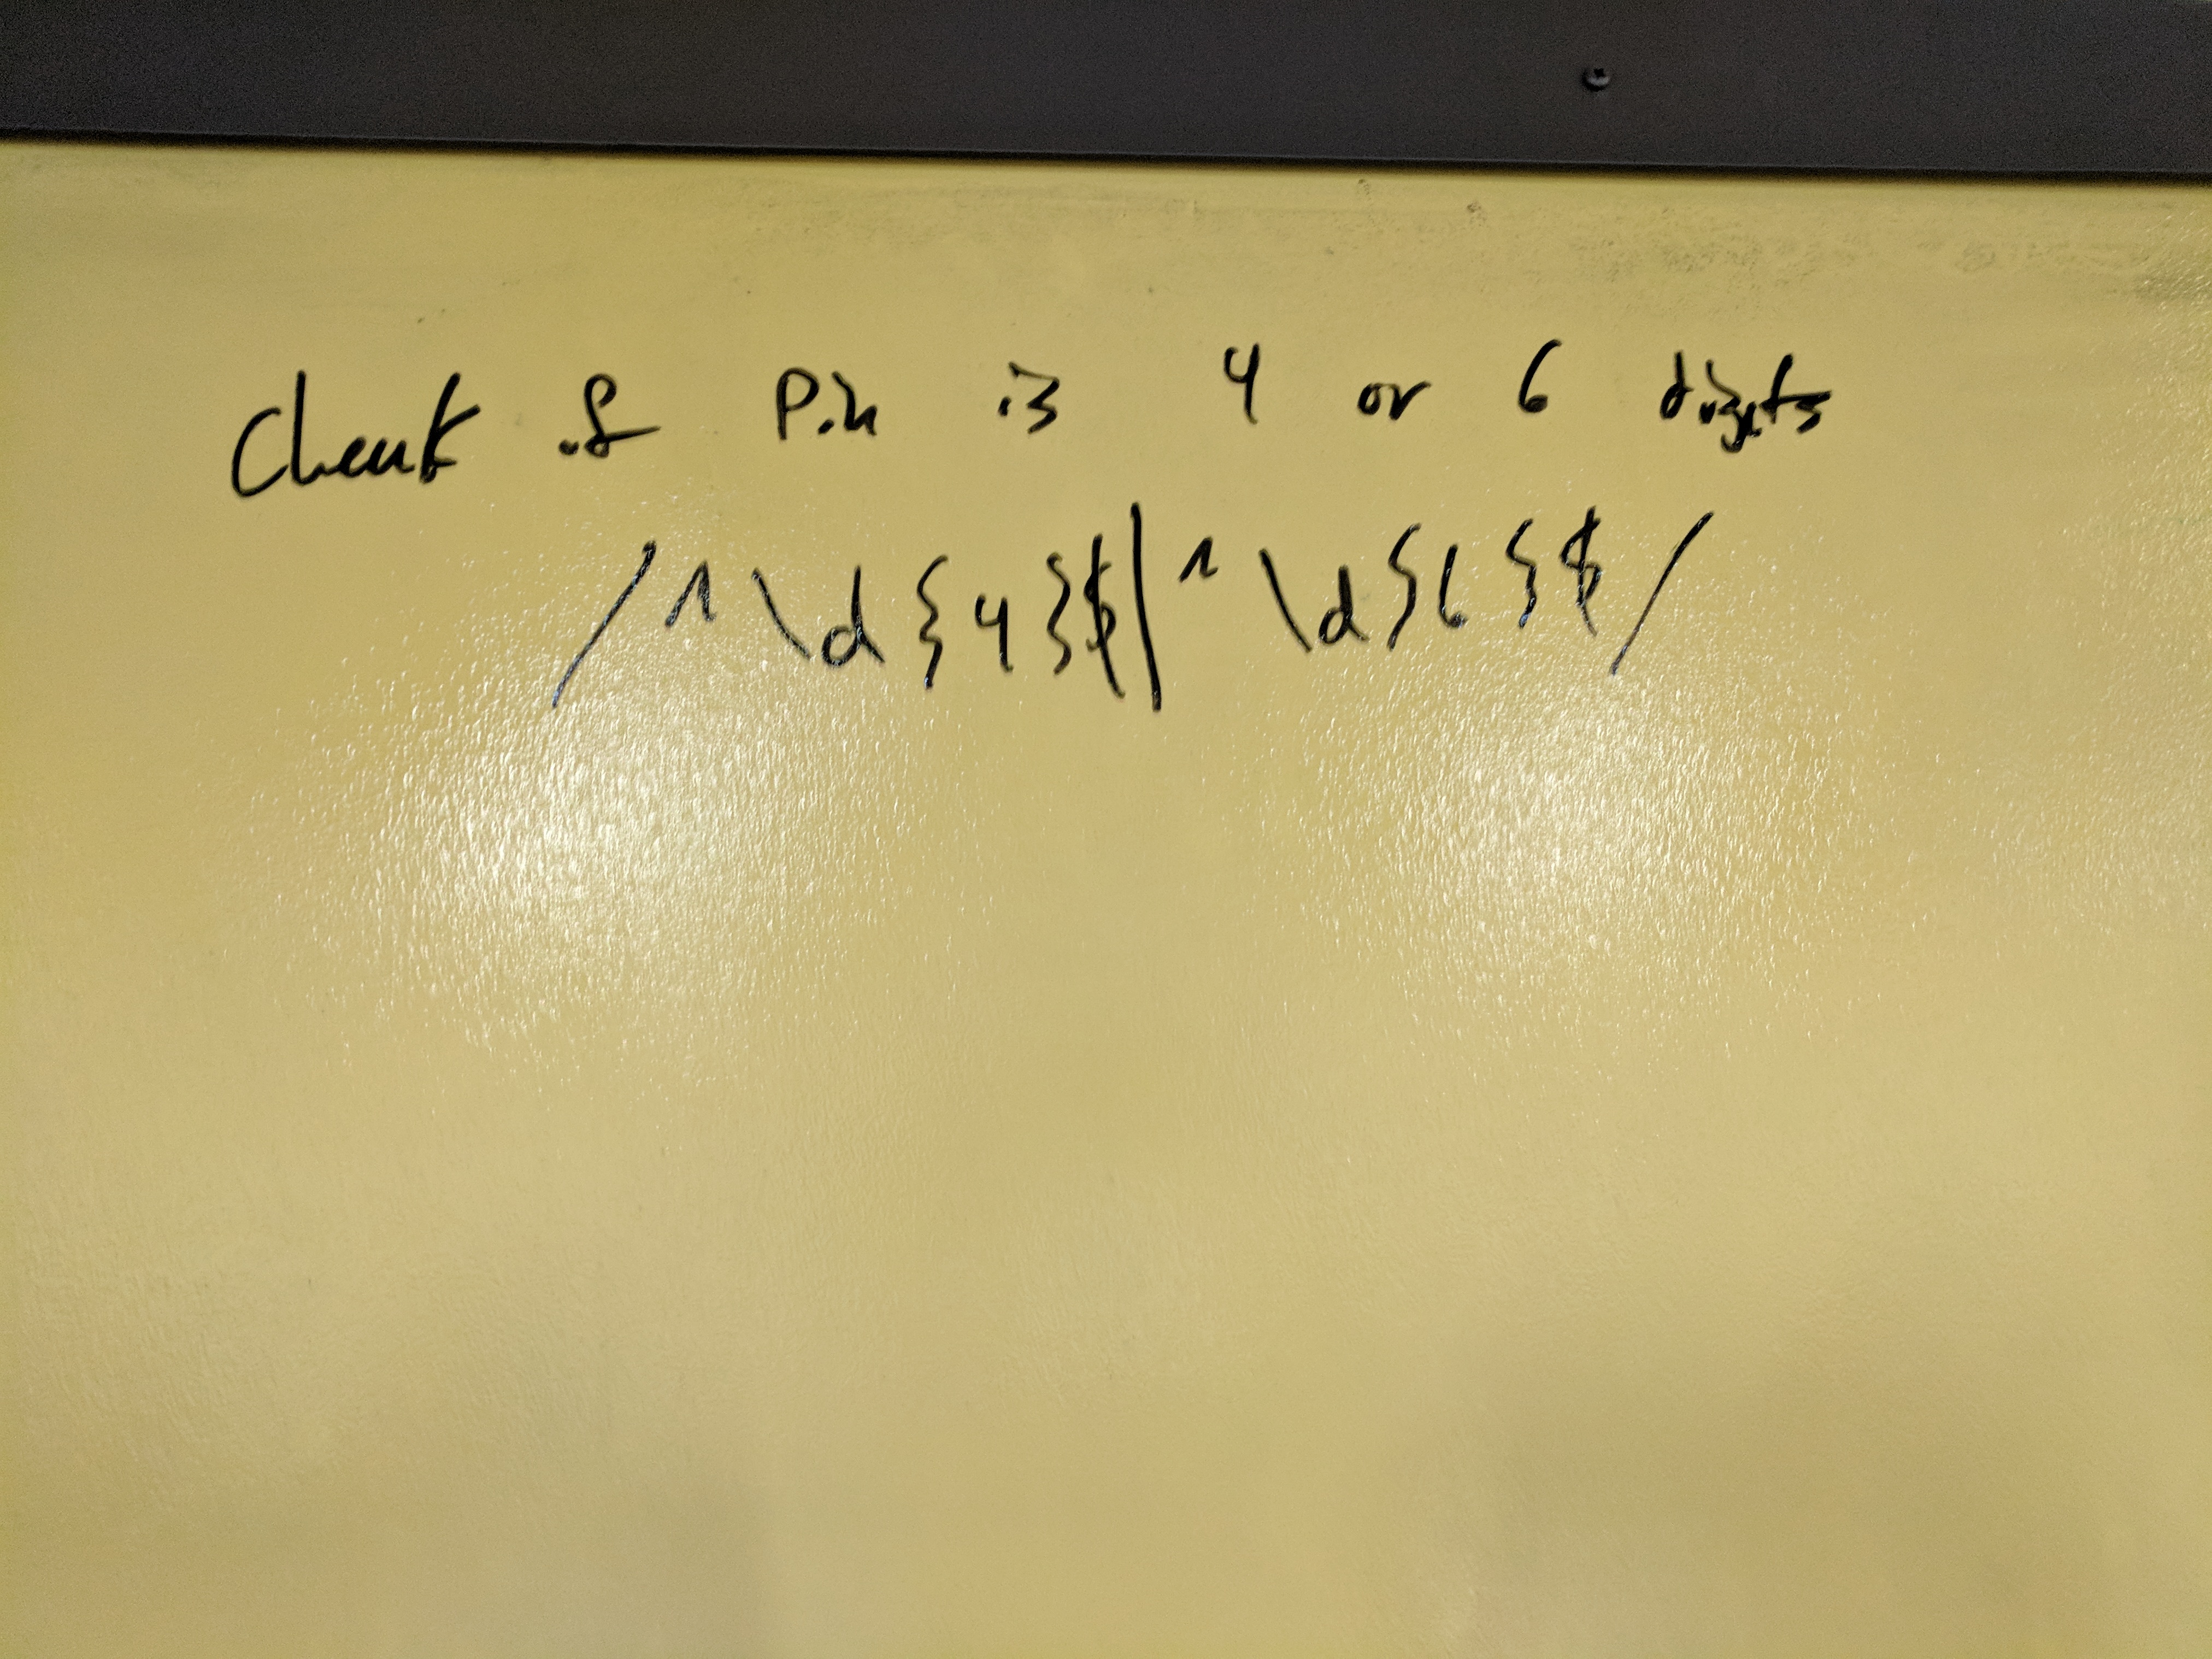 Check if Pin is 4 or 6 digits
/^\d{4}$|^\d{6}$/